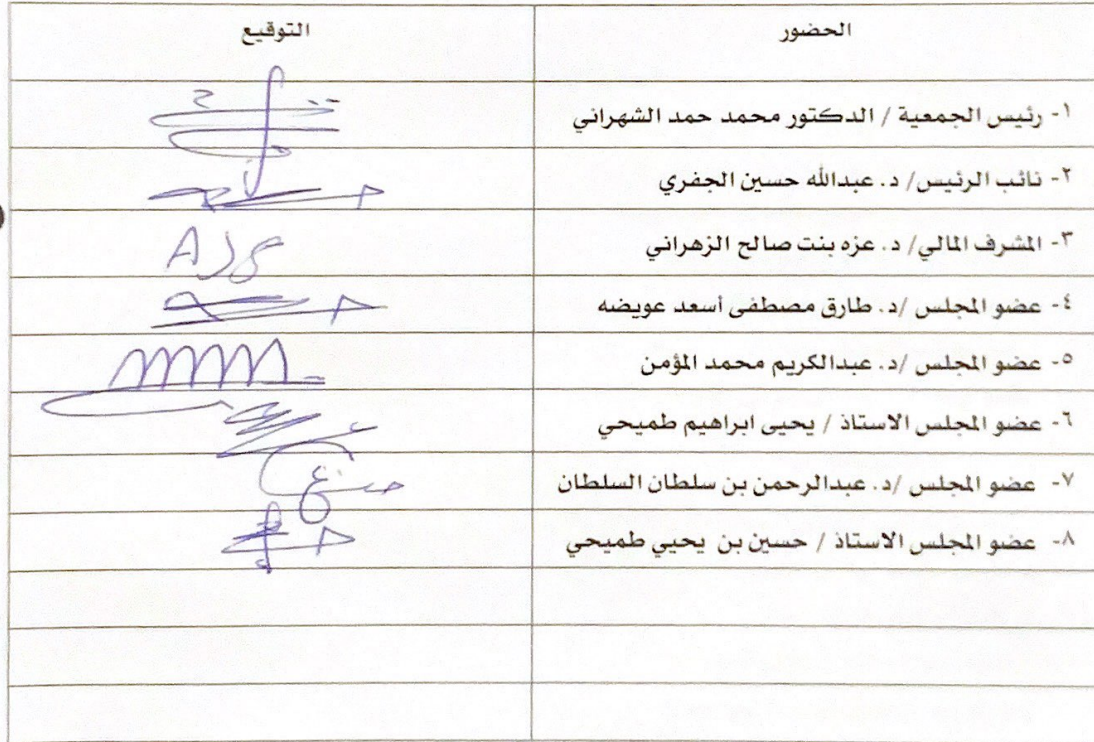 الحضور التوقيع
١- رئيس الجمعية / الدكتور محمد حمد الشهراني
٢- نائب الرئيس/ د. عبدالله حسين الجفري
٣- المشرف المالي/ د. عزه بنت صالح الزهراني
٤- عضو المجلس /د. طارق مصطفى أسعد عويضه
٥- عضو المجلس /د. عبدالكريم محمد المؤمن
٦- عضو المجلس الاستاذ / يحيى ابراهيم طميحي
٧- عضو المجلس /د. عبدالرحمن بن سلطان السلطان
٨- عضو المجلس الاستاذ / حسين بن يحيي طميحي